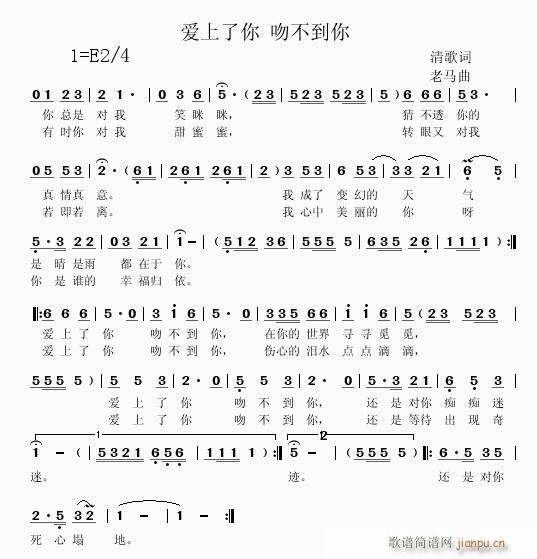 爱上了你 吻不到你
1=E2/4
清歌词
老马曲
01 23 | 2 1· 03 | 6 5· (23 | 55 5235 | 5235 5·) | 66 66 | 53 5· |
你总是 对我 笑 咪咪， 猜不透 你的
有时你 对我 甜 蜜蜜， 转眼又 对我
05 53 | 2· (61 | 261 261 | 261 2) | 3 53 | 6 53 | 33 21 | 6 5·
真情真 意。 我 成了 变幻的 天 气
若即若 离。 我 心中 美丽的 你 呀
5·3 22 | 03 21 | 1 — | (512 36 | 555 5 | 635 26· | 1111) :||
是 晴是雨 都在于 你。
你 是谁的 幸福归 依。
||: 6 6 6 | 5· 0 | 3 i 6 | 5· 0 | 335 66 | i i 6 5 | (23 523 |
爱 上 了 你 吻 不 到 你， 在你的 世界 寻 寻 觅 觅，
爱 上 了 你 吻 不 到 你， 伤心的 泪水 点 点 滴 滴，
555 5) | 3 2 1 | 2· 0 | 5 5 3 | 2· 0 | 3 56 | 6 5 3 |
爱 上 了 你 吻 不 到 你， 还 是 对你 痴 痴 迷
爱 上 了 你 吻 不 到 你， 还 是 等待 出 现 奇
1
2
1 — | (5321 656 | 111 1) :|| 5 — ||: 6·5 35
迷。 迹。 还 是 对你
2·5 32 | 1 — 1 — :||
死 心 塌 地。
歌谱简谱网
jianpu.cn